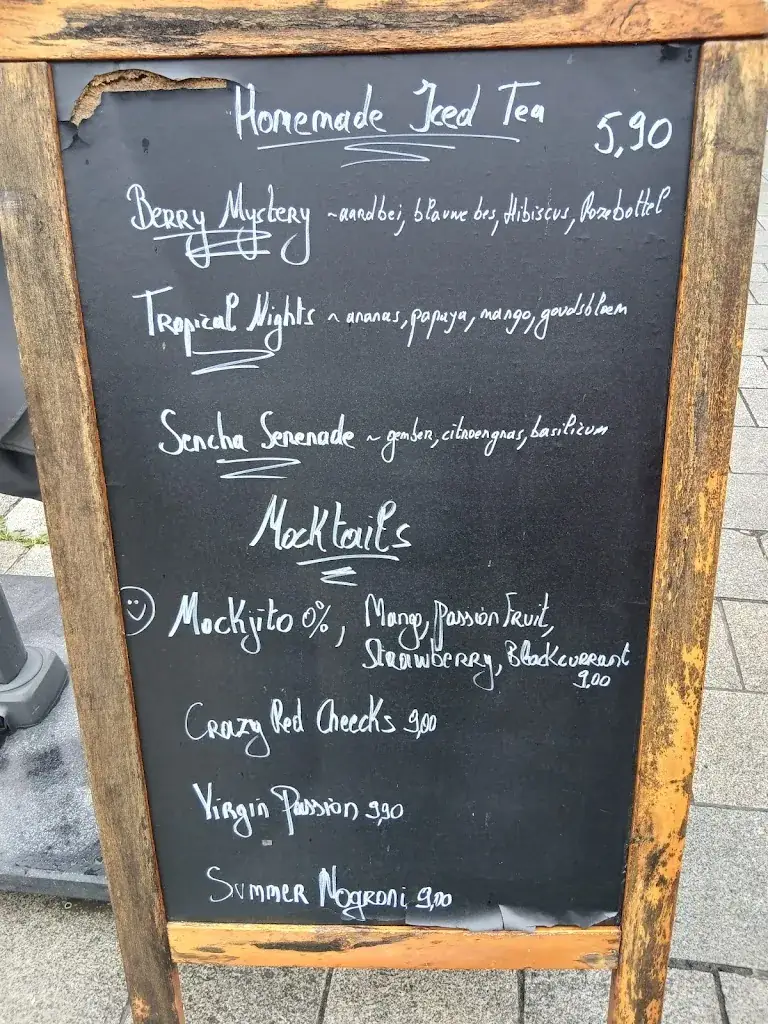 Homemade Iced Tea 5,90
Berry Mystery ~ aardbei, blauwe bes, Hibiscus, Rozebottel
Tropical Nights ~ ananas, papaya, mango, goudsbloem
Sencha Serenade ~ gember, citroengras, basilicum
Mocktails
Mockjito 0%, Mango, Passion Fruit,
Strawberry, Blackcurrant
9,00
Crazy Red Cheecks 9,00
Virgin Passion 9,90
Summer Nogroni 9,00